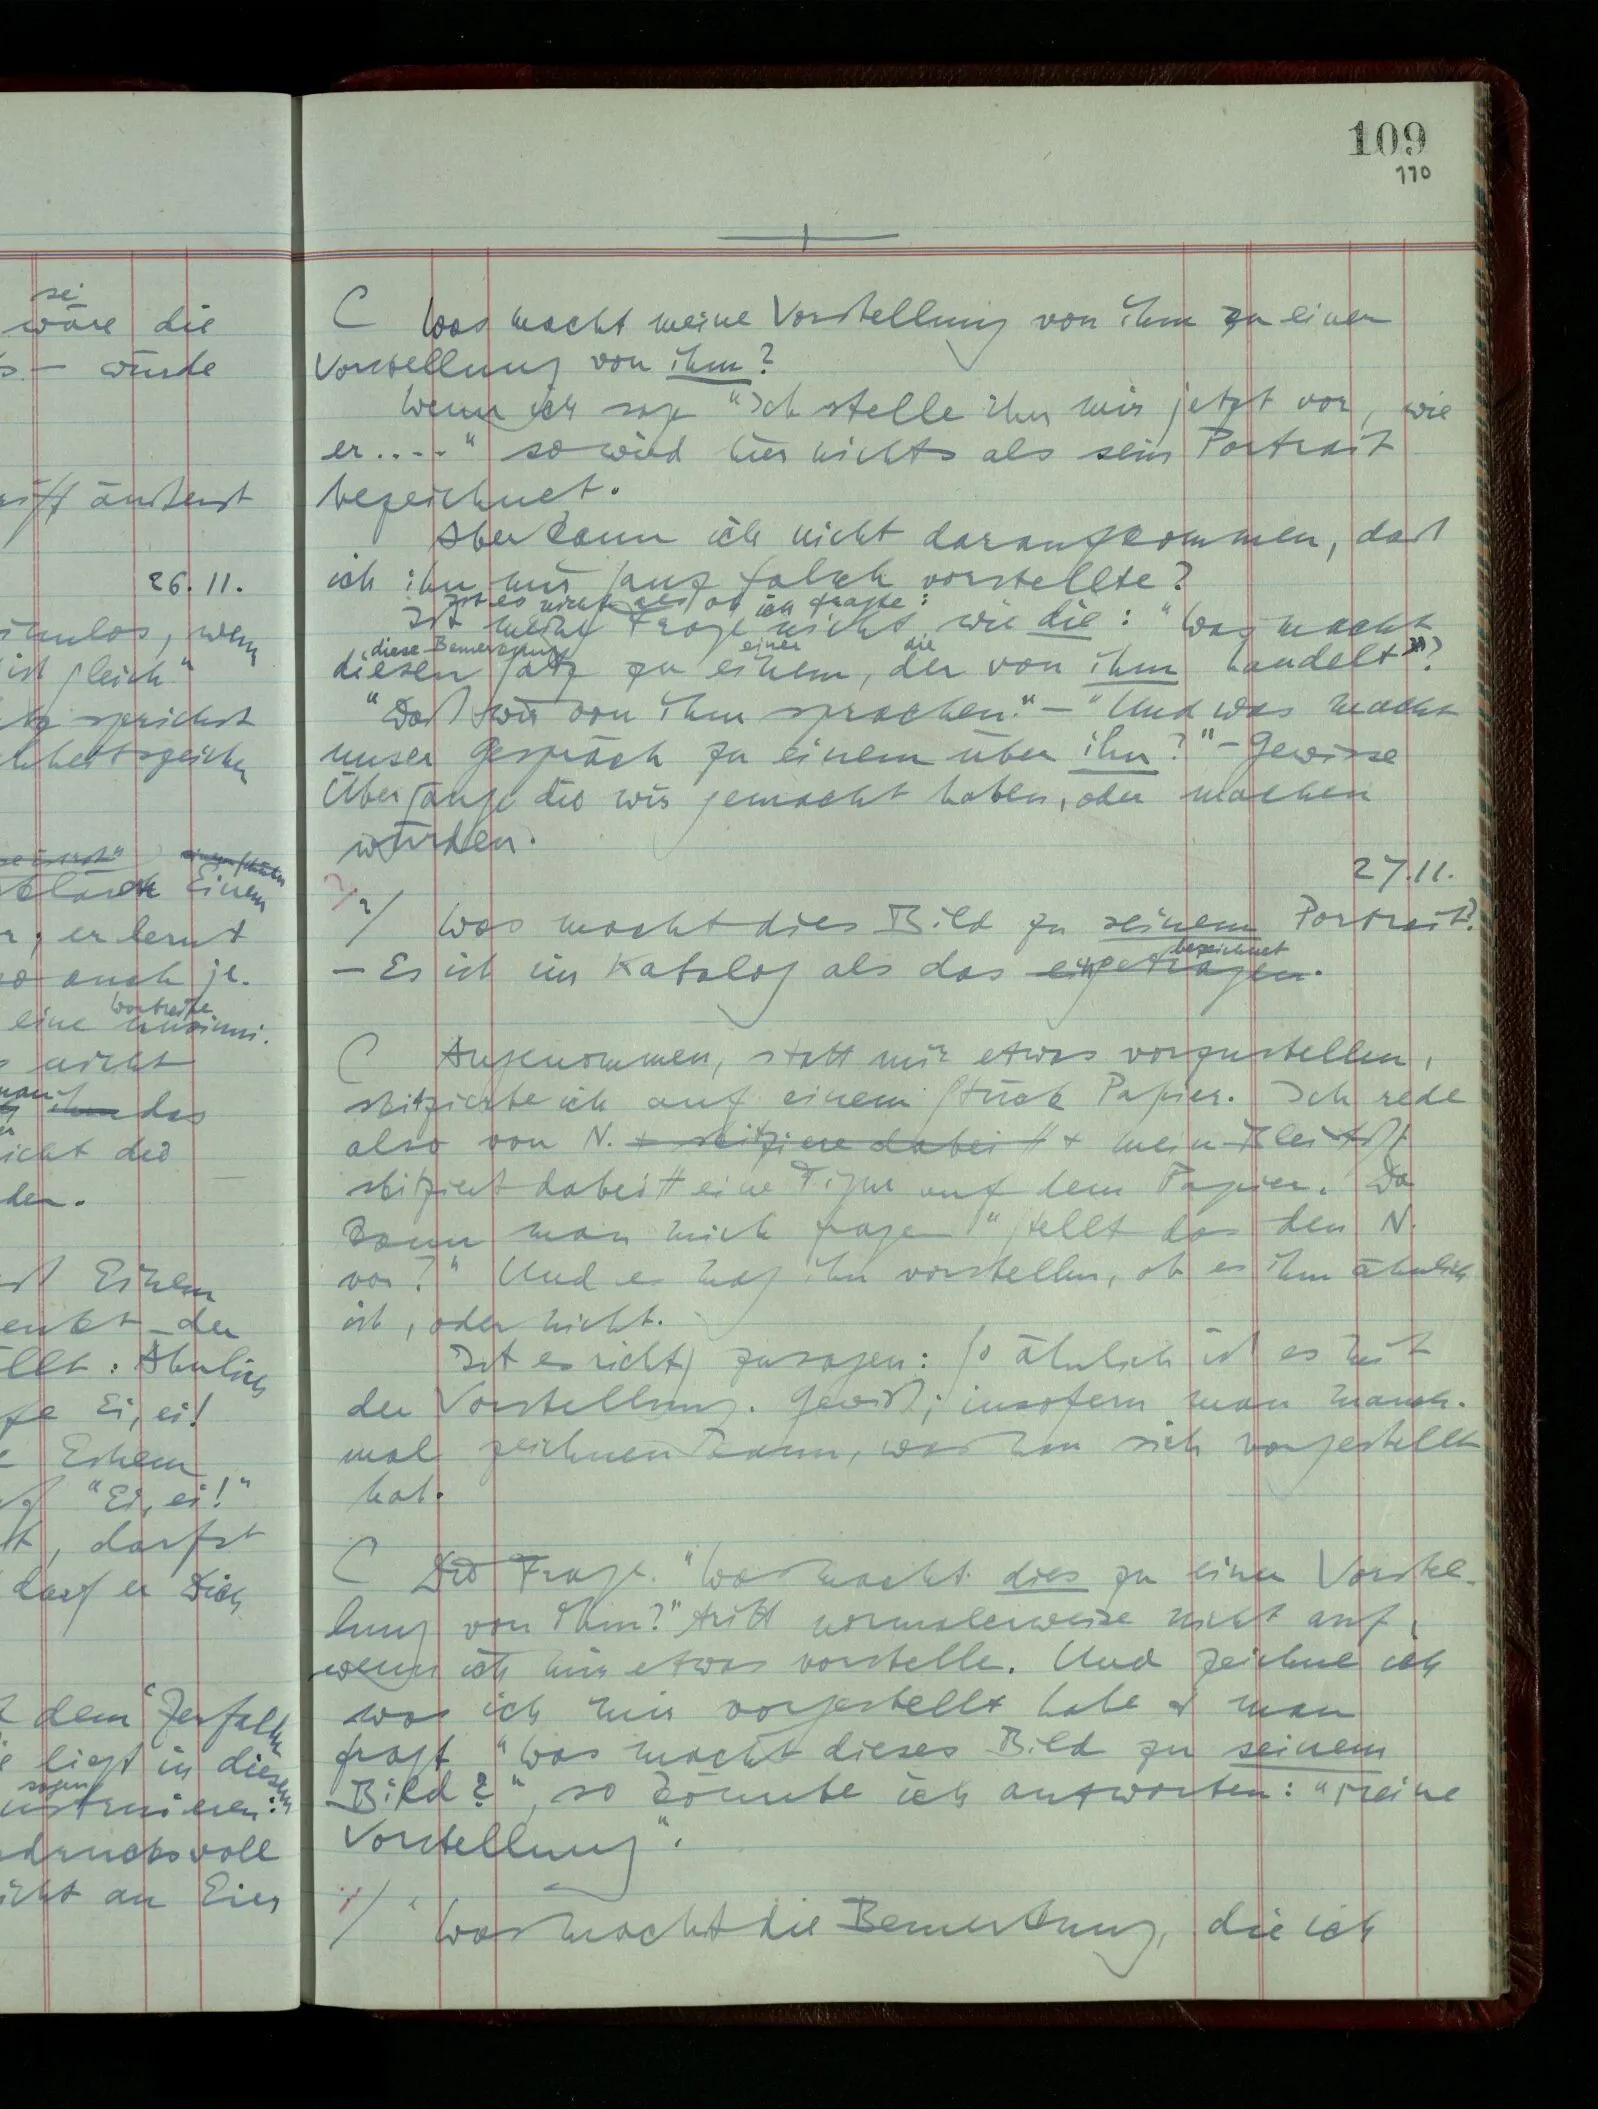 109
110
C Was macht meine Vorstellung von ihm zu einer
Vorstellung von ihm?
Wenn ich sage "Ich stelle ihn mir jetzt vor, wie
er...." so wird hier nichts als sein Portrait
bezeichnet.
Aber kann ich nicht daraufkommen, daß
ich ihn mir ganz falsch vorstellte?
Ist es nicht als ob ich fragte:
Ist meine Frage nicht wie die: "Was macht
diese Bemerkung einer die
diesen Satz zu einem, der von ihm handelt"?
"Daß wir von ihm sprachen." – "Und was macht
unser Gespräch zu einem über ihn?" – Gewisse
Übergänge die wir gemacht haben, oder machen
würden.
27.11.
/ Was macht dies Bild zu seinem Portrait?
bezeichnet
– Es ist im Katalog als das eingetragen.
C Angenommen, statt mir etwas vorzustellen,
skizzierte ich auf einem Stück Papier. Ich rede
also von N. + skizziere dabei + mein Bleistift
skizziert dabei eine Figur auf dem Papier. Da
kann man mich fragen "Stellt das den N.
vor?" Und es mag ihn vorstellen, ob es ihm ähnlich
ist, oder nicht.
Ist es richtig zu sagen: So ähnlich ist es mit
der Vorstellung. Gewiß; insofern man manch-
mal zeichnen kann, was man sich vorgestellt
hat.
C Die Frage. "Was macht dies zu einer Vorstel-
lung von ihm?" tritt normalerweise nicht auf,
wenn ich mir etwas vorstelle. Und zeichne ich
was ich mir vorgestellt habe & man
fragt "Was macht dieses Bild zu seinem
Bild?", so könnte ich antworten: "Meine
Vorstellung".
/ Was macht die Bemerkung, die ich
sei
wäre die
– würde
äußerst
26.11.
wenn
ist gleich"
sprichst
Einem
er lernt
so auch je-
Wortreihe
eine unsinni-
nicht
man
ihm das
nicht die
den.
Einem
der
Ähnlich
Ei, ei!
Einem
"Ei, ei!"
darfst
darf er Dich
dem "Zerfallen
liegt in diesem
sagen
konstruieren:
ausdrucksvoll
nicht an Eier